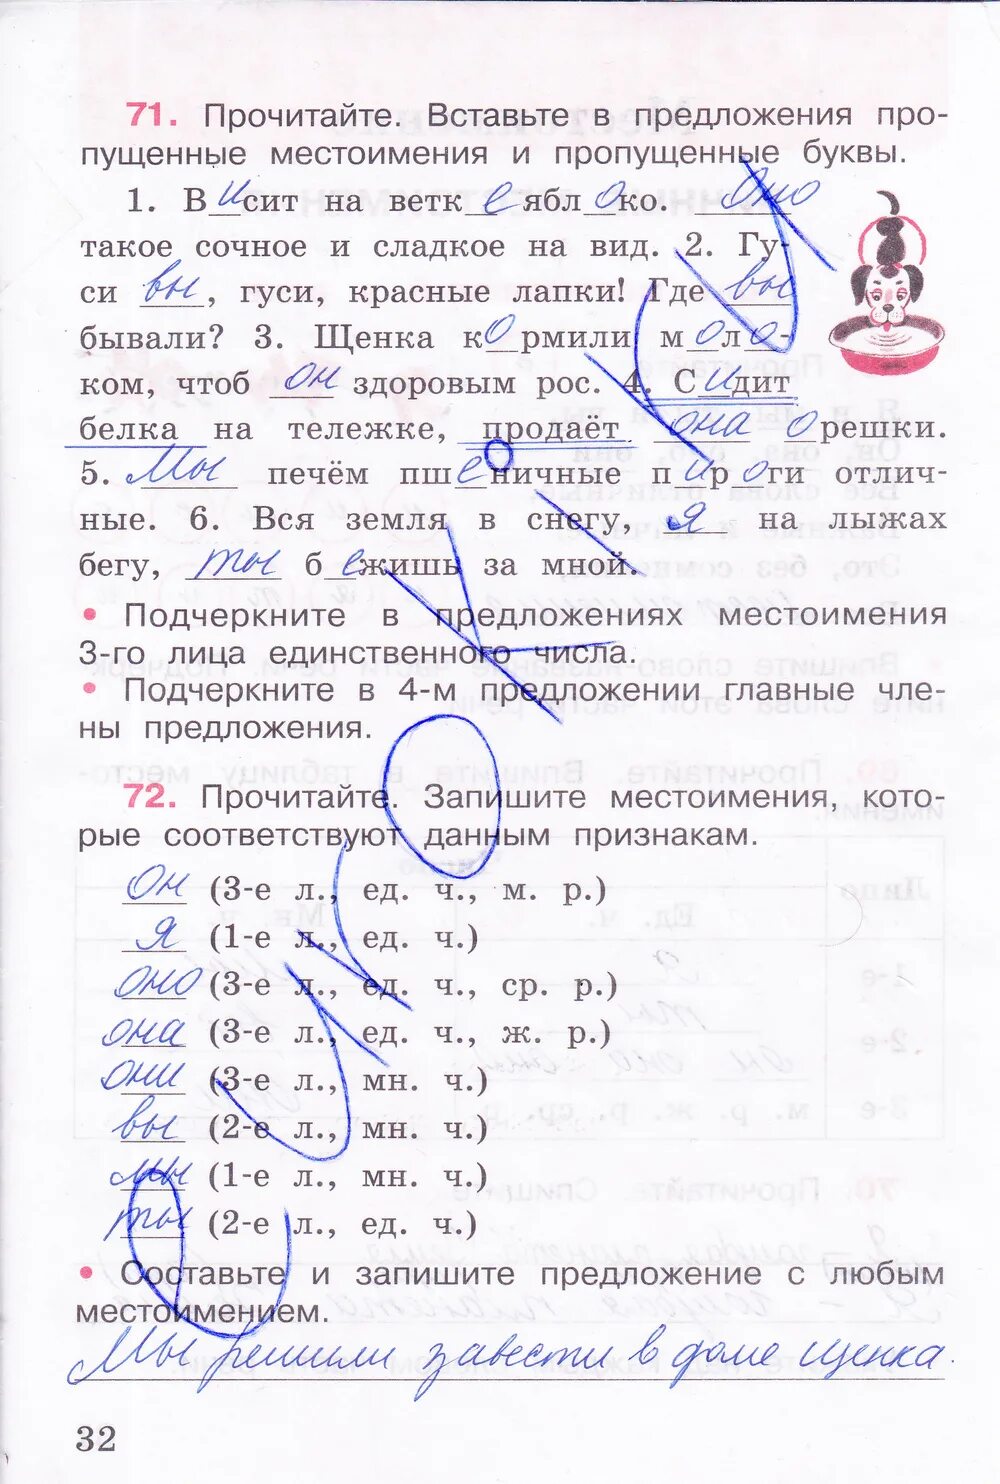 71. Прочитайте. Вставьте в предложения про-
пущенные местоимения и пропущенные буквы.
1. Висит на ветке яблоко. оно
такое сочное и сладкое на вид. 2. Гу-
си вы, гуси, красные лапки! Где вы
бывали? 3. Щенка кормили моло-
ком, чтоб он здоровым рос. 4. Сидит
белка на тележке, продаёт она орешки.
5. Мы печём пшеничные пироги отлич-
ные. 6. Вся земля в снегу, я на лыжах
бегу, ты бежишь за мной.
• Подчеркните в предложениях местоимения
3-го лица единственного числа.
• Подчеркните в 4-м предложении главные чле-
ны предложения.
72. Прочитайте. Запишите местоимения, кото-
рые соответствуют данным признакам.
он (3-е л., ед. ч., м. р.)
я (1-е л., ед. ч.)
оно (3-е л., ед. ч., ср. р.)
она (3-е л., ед. ч., ж. р.)
они (3-е л., мн. ч.)
вы (2-е л., мн. ч.)
мы (1-е л., мн. ч.)
ты (2-е л., ед. ч.)
• Составьте и запишите предложение с любым
местоимением.
Мы решили завести в доме щенка.
32